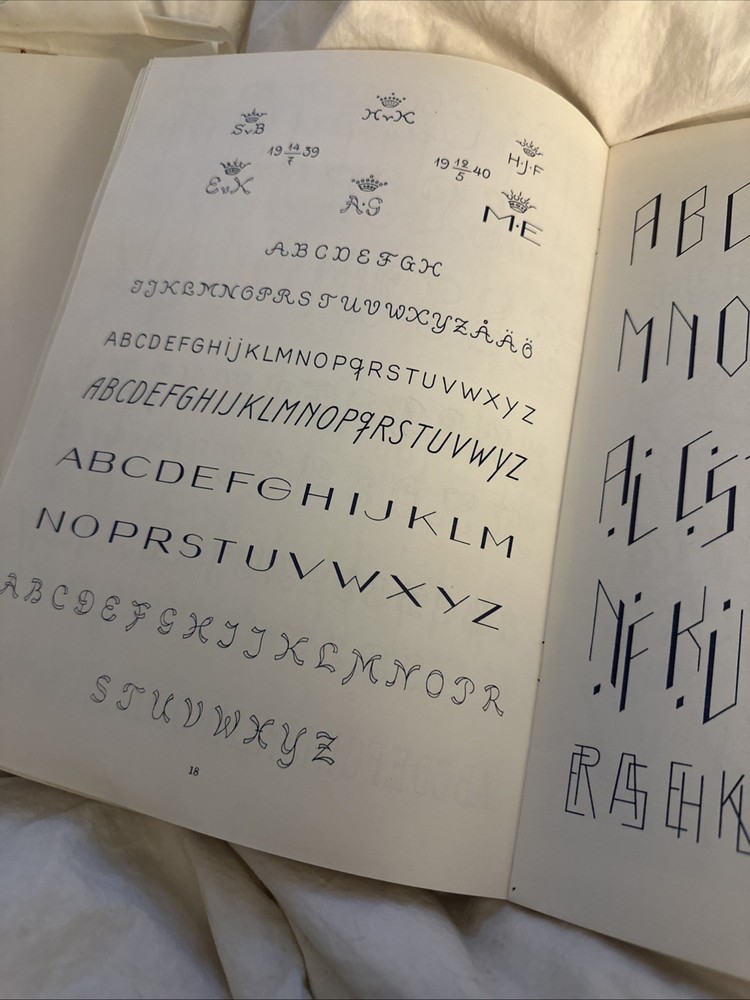 HvK
SvB
19 14/7 39
19 12/5 40
H·J·F
EvK
A·G
M·E
ABCDEFGH
IJKLMNOPRSTUVWXYZÅÄÖ
ABCDEFGHIJKLMNOPqRSTUVWXYZ
ABCDEFGHIJKLMNOPqRSTUVWYZ
ABCDEFGHIJKLM
NOPRSTUVWXYZ
ABCDEFGHIJKLMNOPR
STUVWXYZ
18
ABC
MNO